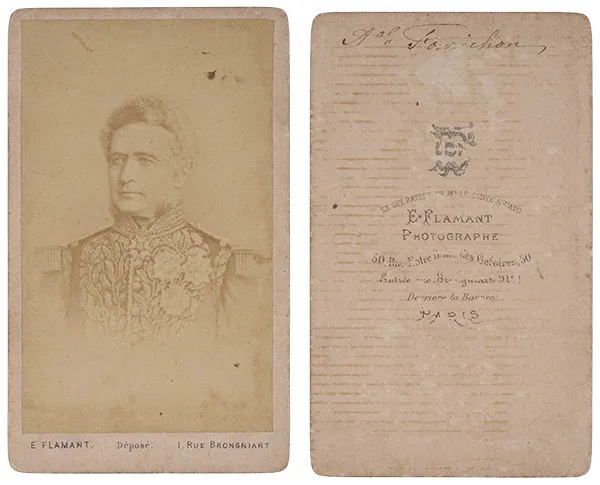 E FLAMANT. Déposé. 1, RUE BRONGNIART
Aal Fourichon,
EX OPERATEUR DE MR LE COMTE AGUADO
E. FLAMANT
PHOTOGRAPHE
50 Rue Notre Dame des Victoires, 50
Entrée rue Brongniart No 1
Derrière la Bourse
PARIS